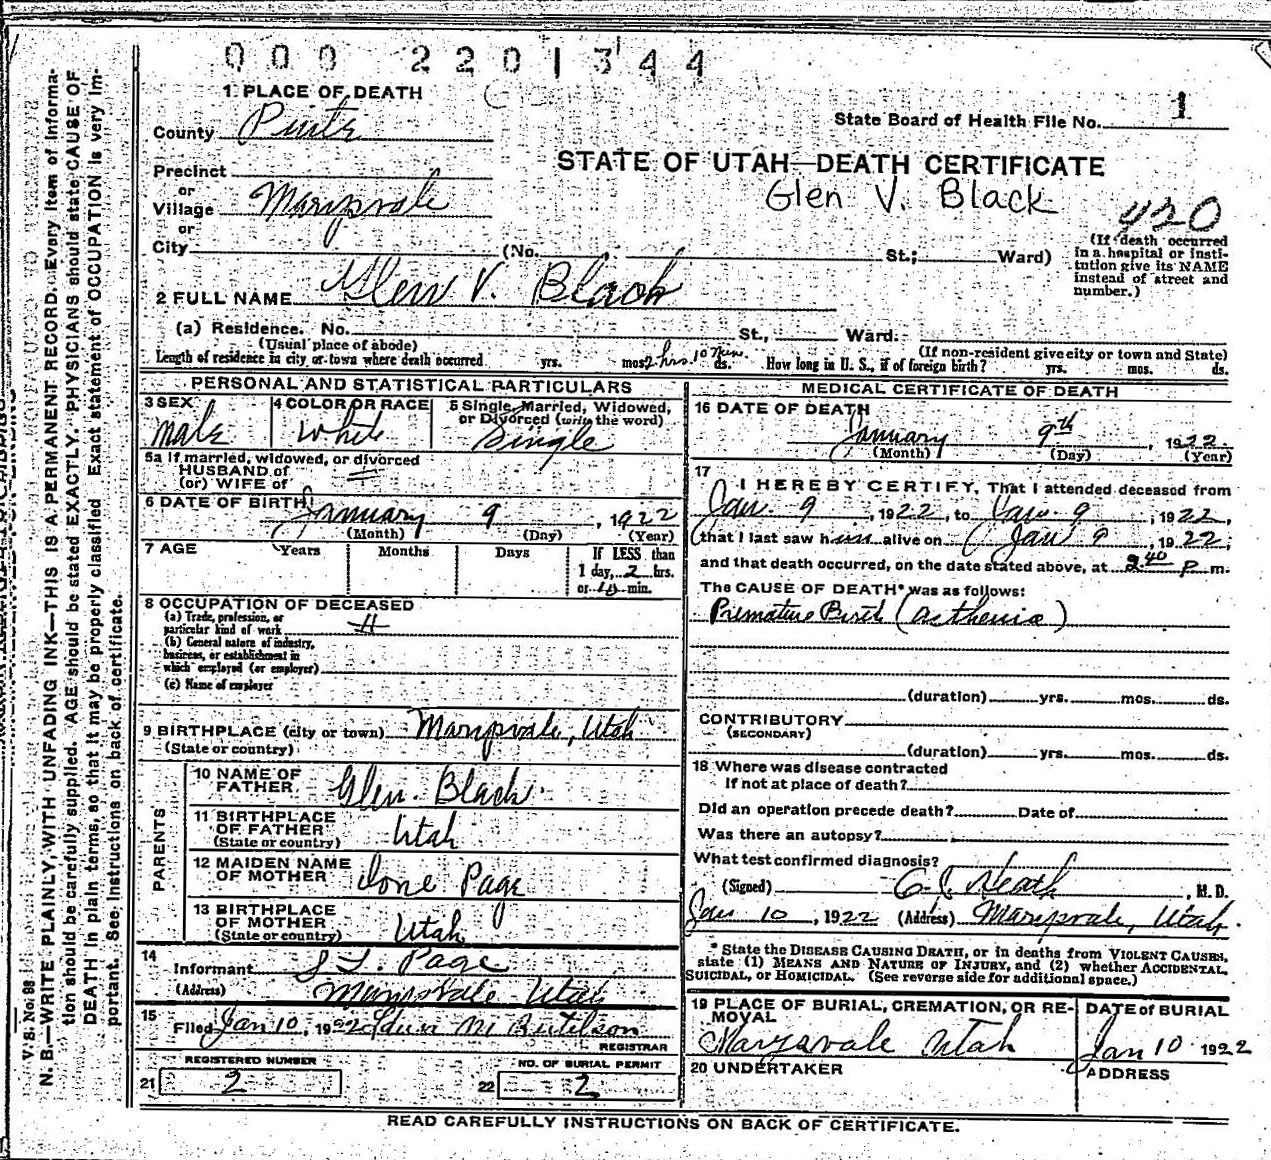 000 2201344
1 PLACE OF DEATH
County Piute
State Board of Health File No. 1
Precinct
or
Village Marysvale
or
City (No. St.; Ward)
STATE OF UTAH—DEATH CERTIFICATE
Glen V. Black
420
(If death occurred
in a hospital or insti-
tution give its NAME
instead of street and
number.)
2 FULL NAME Glen V. Black
(a) Residence. No. St., Ward.
(Usual place of abode) (If non-resident give city or town and State)
Length of residence in city or town where death occurred yrs. mos. 2 hrs. 10 min. ds. How long in U. S., if of foreign birth? yrs. mos. ds.
PERSONAL AND STATISTICAL PARTICULARS
3 SEX 4 COLOR OR RACE 5 Single, Married, Widowed,
or Divorced (write the word)
Male White Single
5a If married, widowed, or divorced
HUSBAND of
(or) WIFE of
6 DATE OF BIRTH January 9, 1922
(Month) (Day) (Year)
7 AGE Years Months Days If LESS than
1 day, 2 hrs.
or 10 min.
8 OCCUPATION OF DECEASED
(a) Trade, profession, or
particular kind of work
(b) General nature of industry,
business, or establishment in
which employed (or employer)
(c) Name of employer
9 BIRTHPLACE (city or town) Marysvale, Utah
(State or country)
PARENTS
10 NAME OF
FATHER Glen Black
11 BIRTHPLACE
OF FATHER
(State or country) Utah
12 MAIDEN NAME
OF MOTHER Ione Page
13 BIRTHPLACE
OF MOTHER
(State or country) Utah
14
Informant Page
(Address) Marysvale Utah
15
Filed Jan 10, 1922
REGISTRAR
REGISTERED NUMBER NO. OF BURIAL PERMIT
21 2 22 2
MEDICAL CERTIFICATE OF DEATH
16 DATE OF DEATH
January 9th, 1922
(Month) (Day) (Year)
17
I HEREBY CERTIFY, That I attended deceased from
Jan. 9, 1922, to Jan. 9, 1922,
that I last saw him alive on Jan 9, 1922,
and that death occurred, on the date stated above, at 2:40 P m.
The CAUSE OF DEATH* was as follows:
Premature Birth (asthenia)
(duration) yrs. mos. ds.
CONTRIBUTORY
(SECONDARY)
(duration) yrs. mos. ds.
18 Where was disease contracted
If not at place of death?
Did an operation precede death? Date of
Was there an autopsy?
What test confirmed diagnosis?
(Signed) Heath, M. D.
Jan 10, 1922 (Address) Marysvale, Utah.
* State the DISEASE CAUSING DEATH, or in deaths from VIOLENT CAUSES,
state (1) MEANS AND NATURE OF INJURY, and (2) whether ACCIDENTAL,
SUICIDAL, or HOMICIDAL. (See reverse side for additional space.)
19 PLACE OF BURIAL, CREMATION, OR RE-
MOVAL
Marysvale Utah
DATE of BURIAL
Jan 10 1922
20 UNDERTAKER
ADDRESS
READ CAREFULLY INSTRUCTIONS ON BACK OF CERTIFICATE.
V. S. No. 88
N. B.—WRITE PLAINLY, WITH UNFADING INK—THIS IS A PERMANENT RECORD. Every item of informa-
tion should be carefully supplied. AGE should be stated EXACTLY. PHYSICIANS should state CAUSE OF
DEATH in plain terms, so that it may be properly classified. Exact statement of OCCUPATION is very im-
portant. See instructions on back of certificate.